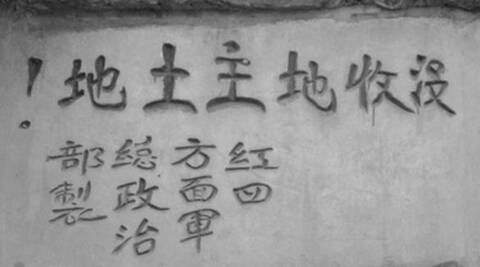 没收地主土地!
红四
方面軍
總政治
部製